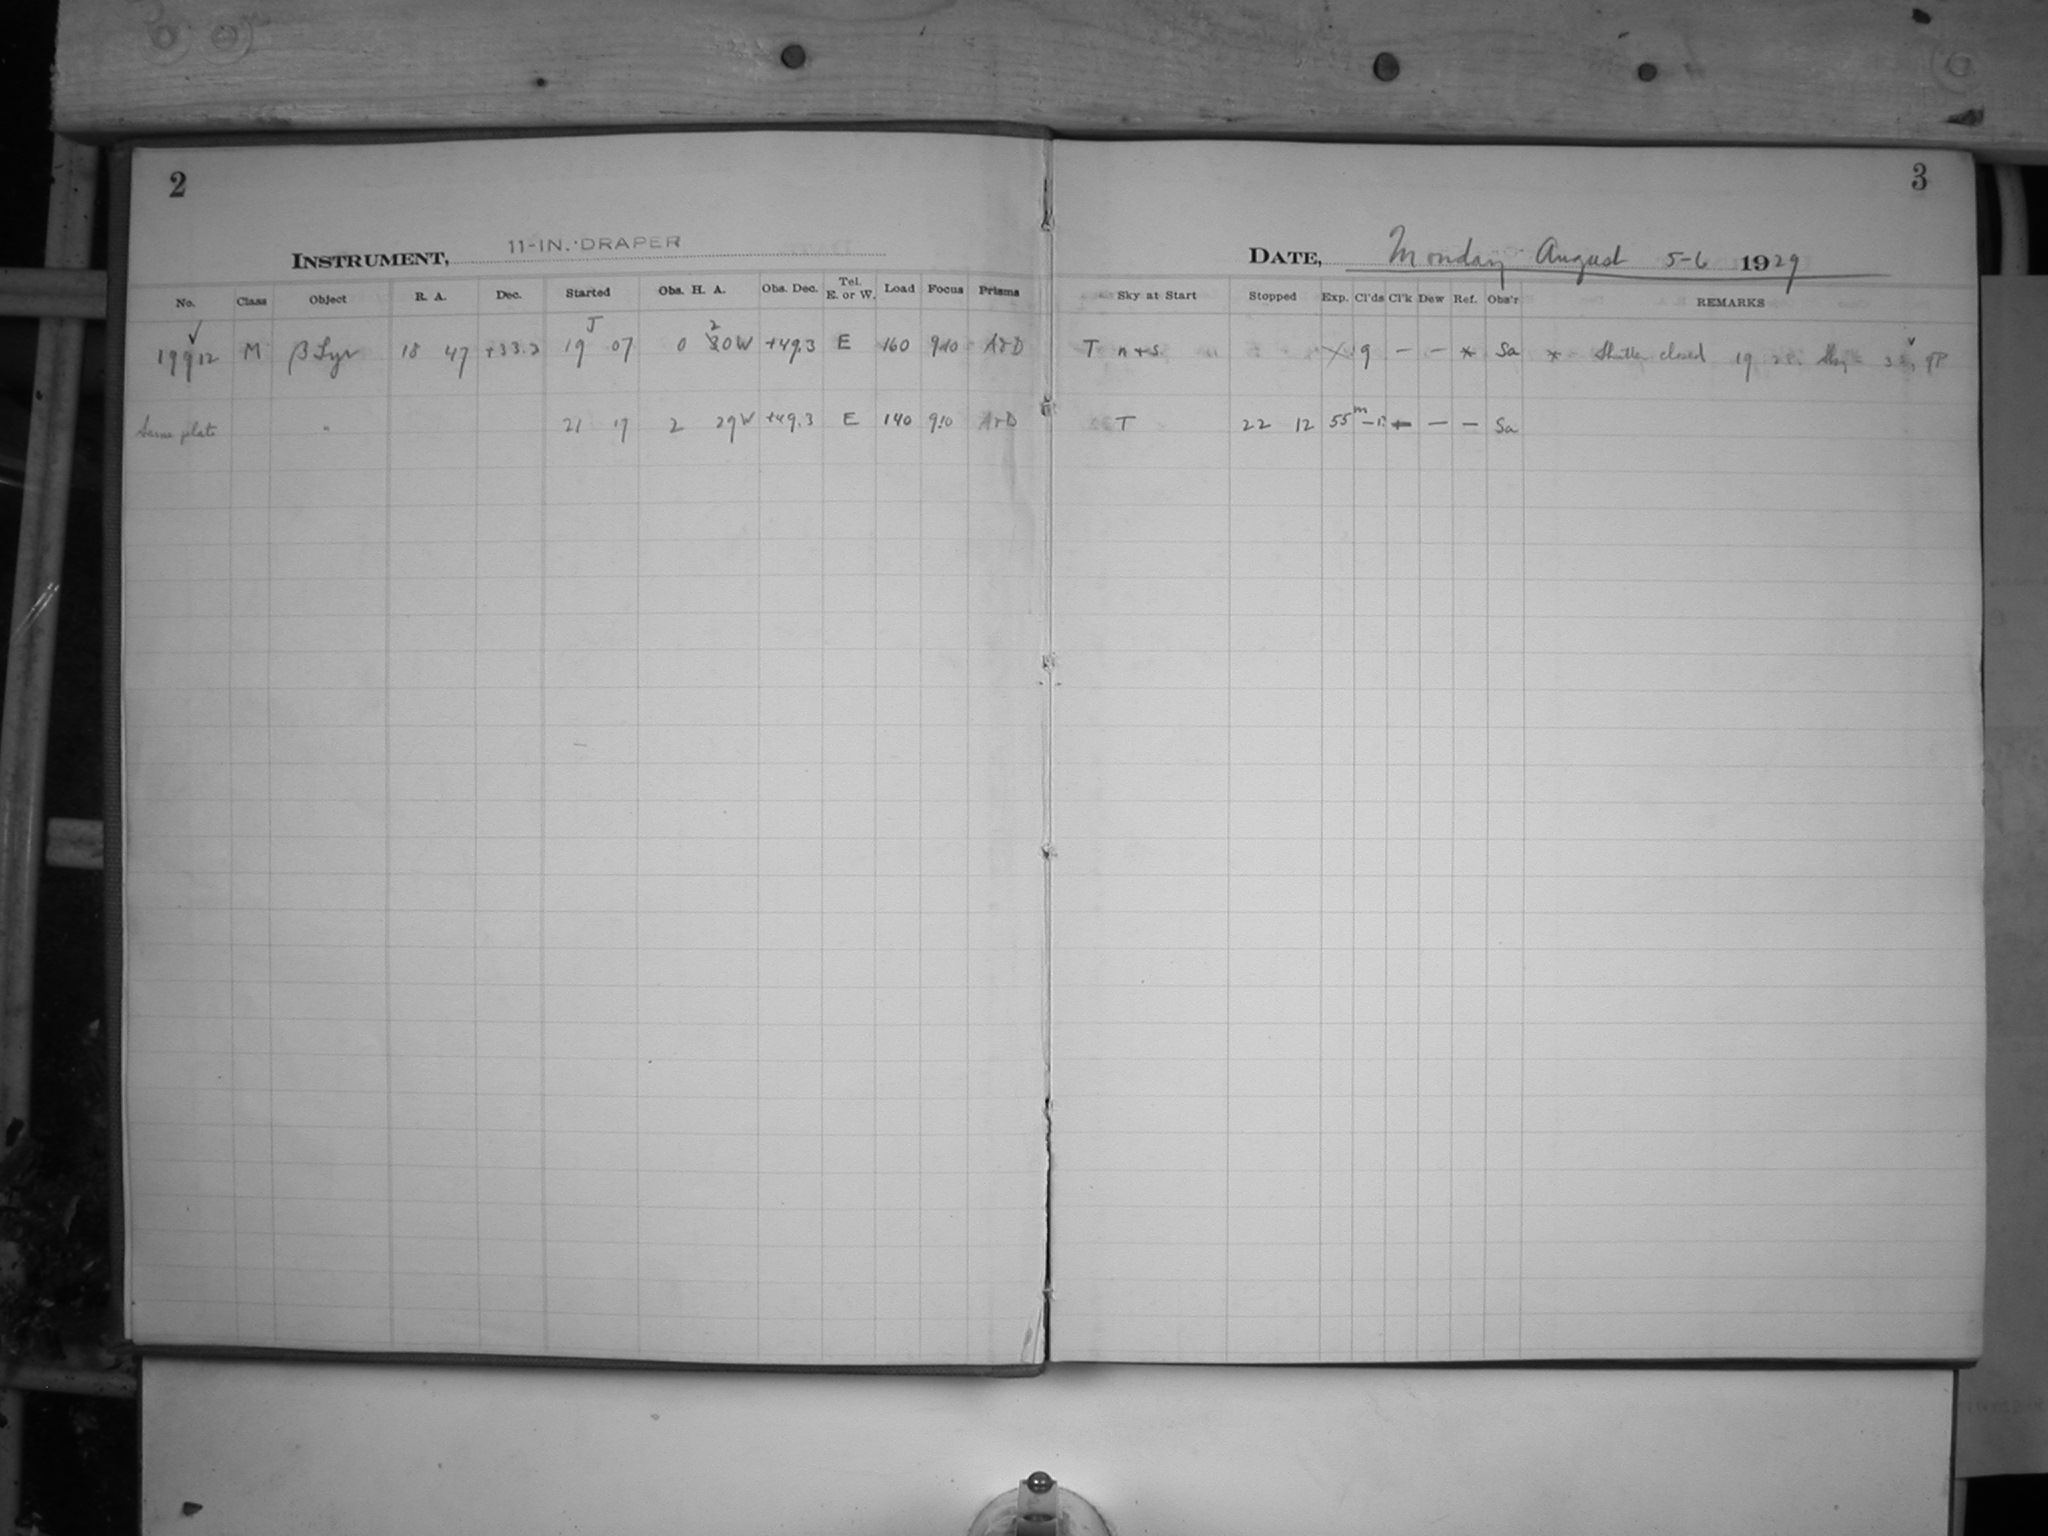 2
INSTRUMENT, 11-IN. DRAPER
No. Class Object R. A. Dec. Started Obs. H. A. Obs. Dec. Tel. E. or W. Load Focus Prisms
19912 M β Lyr 18 47 +33.2 19 07 0 20W +49.3 E 160 9.10 A+D
Same plate " 21 17 2 29W +49.3 E 140 9.10 A+D
3
DATE, Monday August 5-6 1929
Sky at Start Stopped Exp. Cl'ds Cl'k Dew Ref. Obs'r REMARKS
T n+s. X 9 – – * Sa * Shutter closed 19
T 22 12 55m – – – Sa